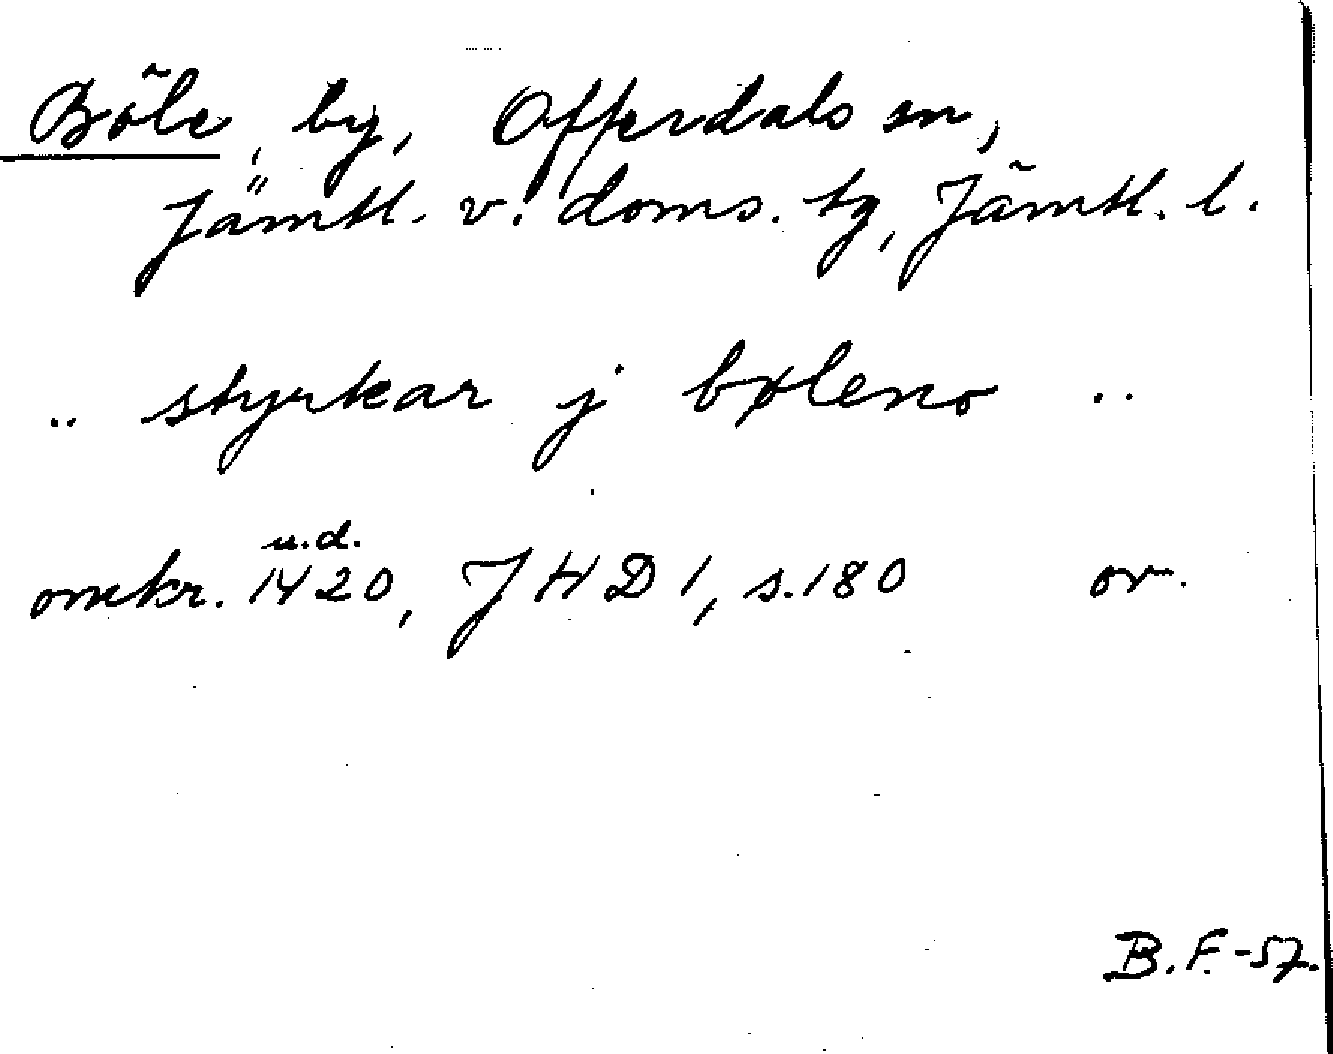 Böle, by, Offerdals sn,
Jämtl. v. doms. tg, Jämtl. l.
.. styrkar j bøleno ..
u.d.
omkr. 1420, JHD 1, s. 180 or.
B.F.-57.